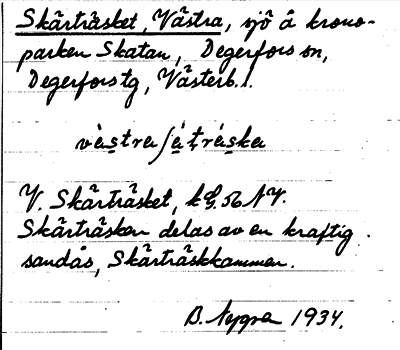 Skärträsket, Västra, sjö å krono-
parken Skatan, Degerfors sn,
Degerfors tg, Västerb. l.
västra
V. Skärträsket, kbl. 56 NV.
Skärträsken delas av en kraftig
sandås, Skärträskkammen.
B. Nygren 1934.